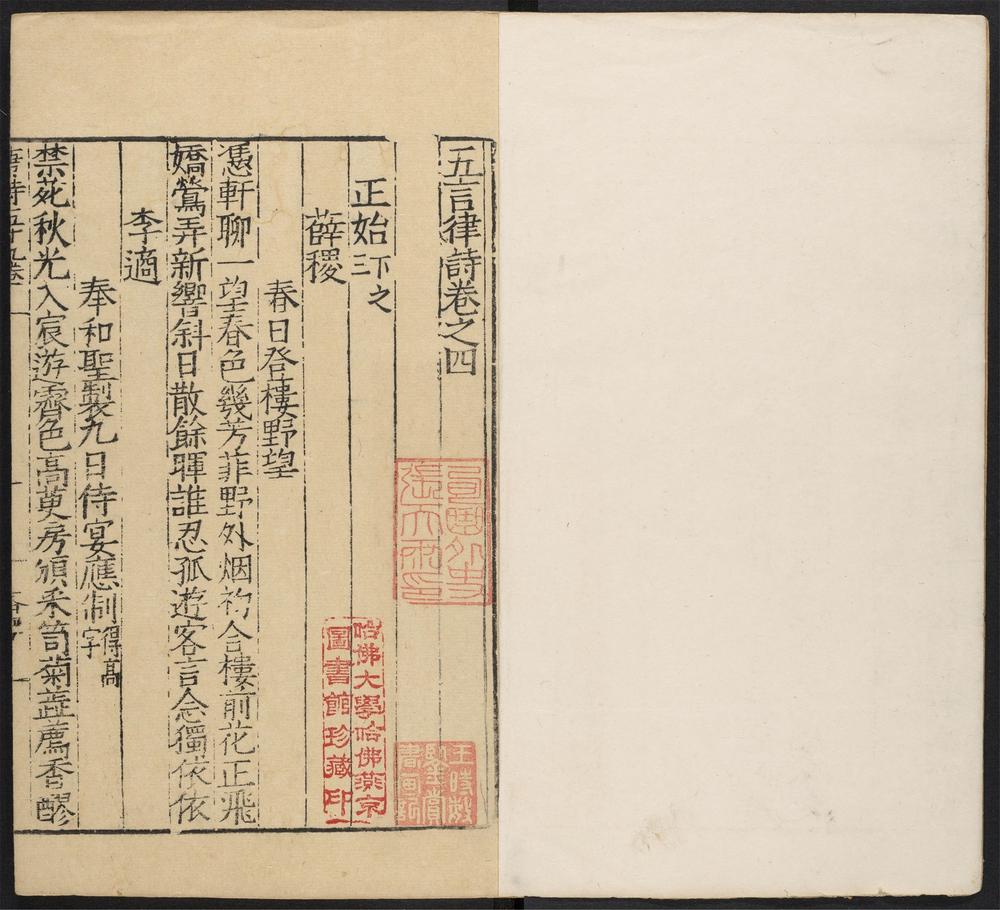 五言律詩卷之四
正始三下之
薛稷
春日登樓野望
憑軒聊一望春色幾芳菲野外烟初合樓前花正飛
嬌鶯弄新響斜日散餘暉誰忍孤遊客言念獨依依
李適
奉和聖製九日侍宴應制得高字
禁苑秋光入宸遊霽色高萸房頒綵笥菊蕋薦香醪
哈佛大學哈佛燕京
圖書館珍藏印
王時敏
鑒賞
書画記